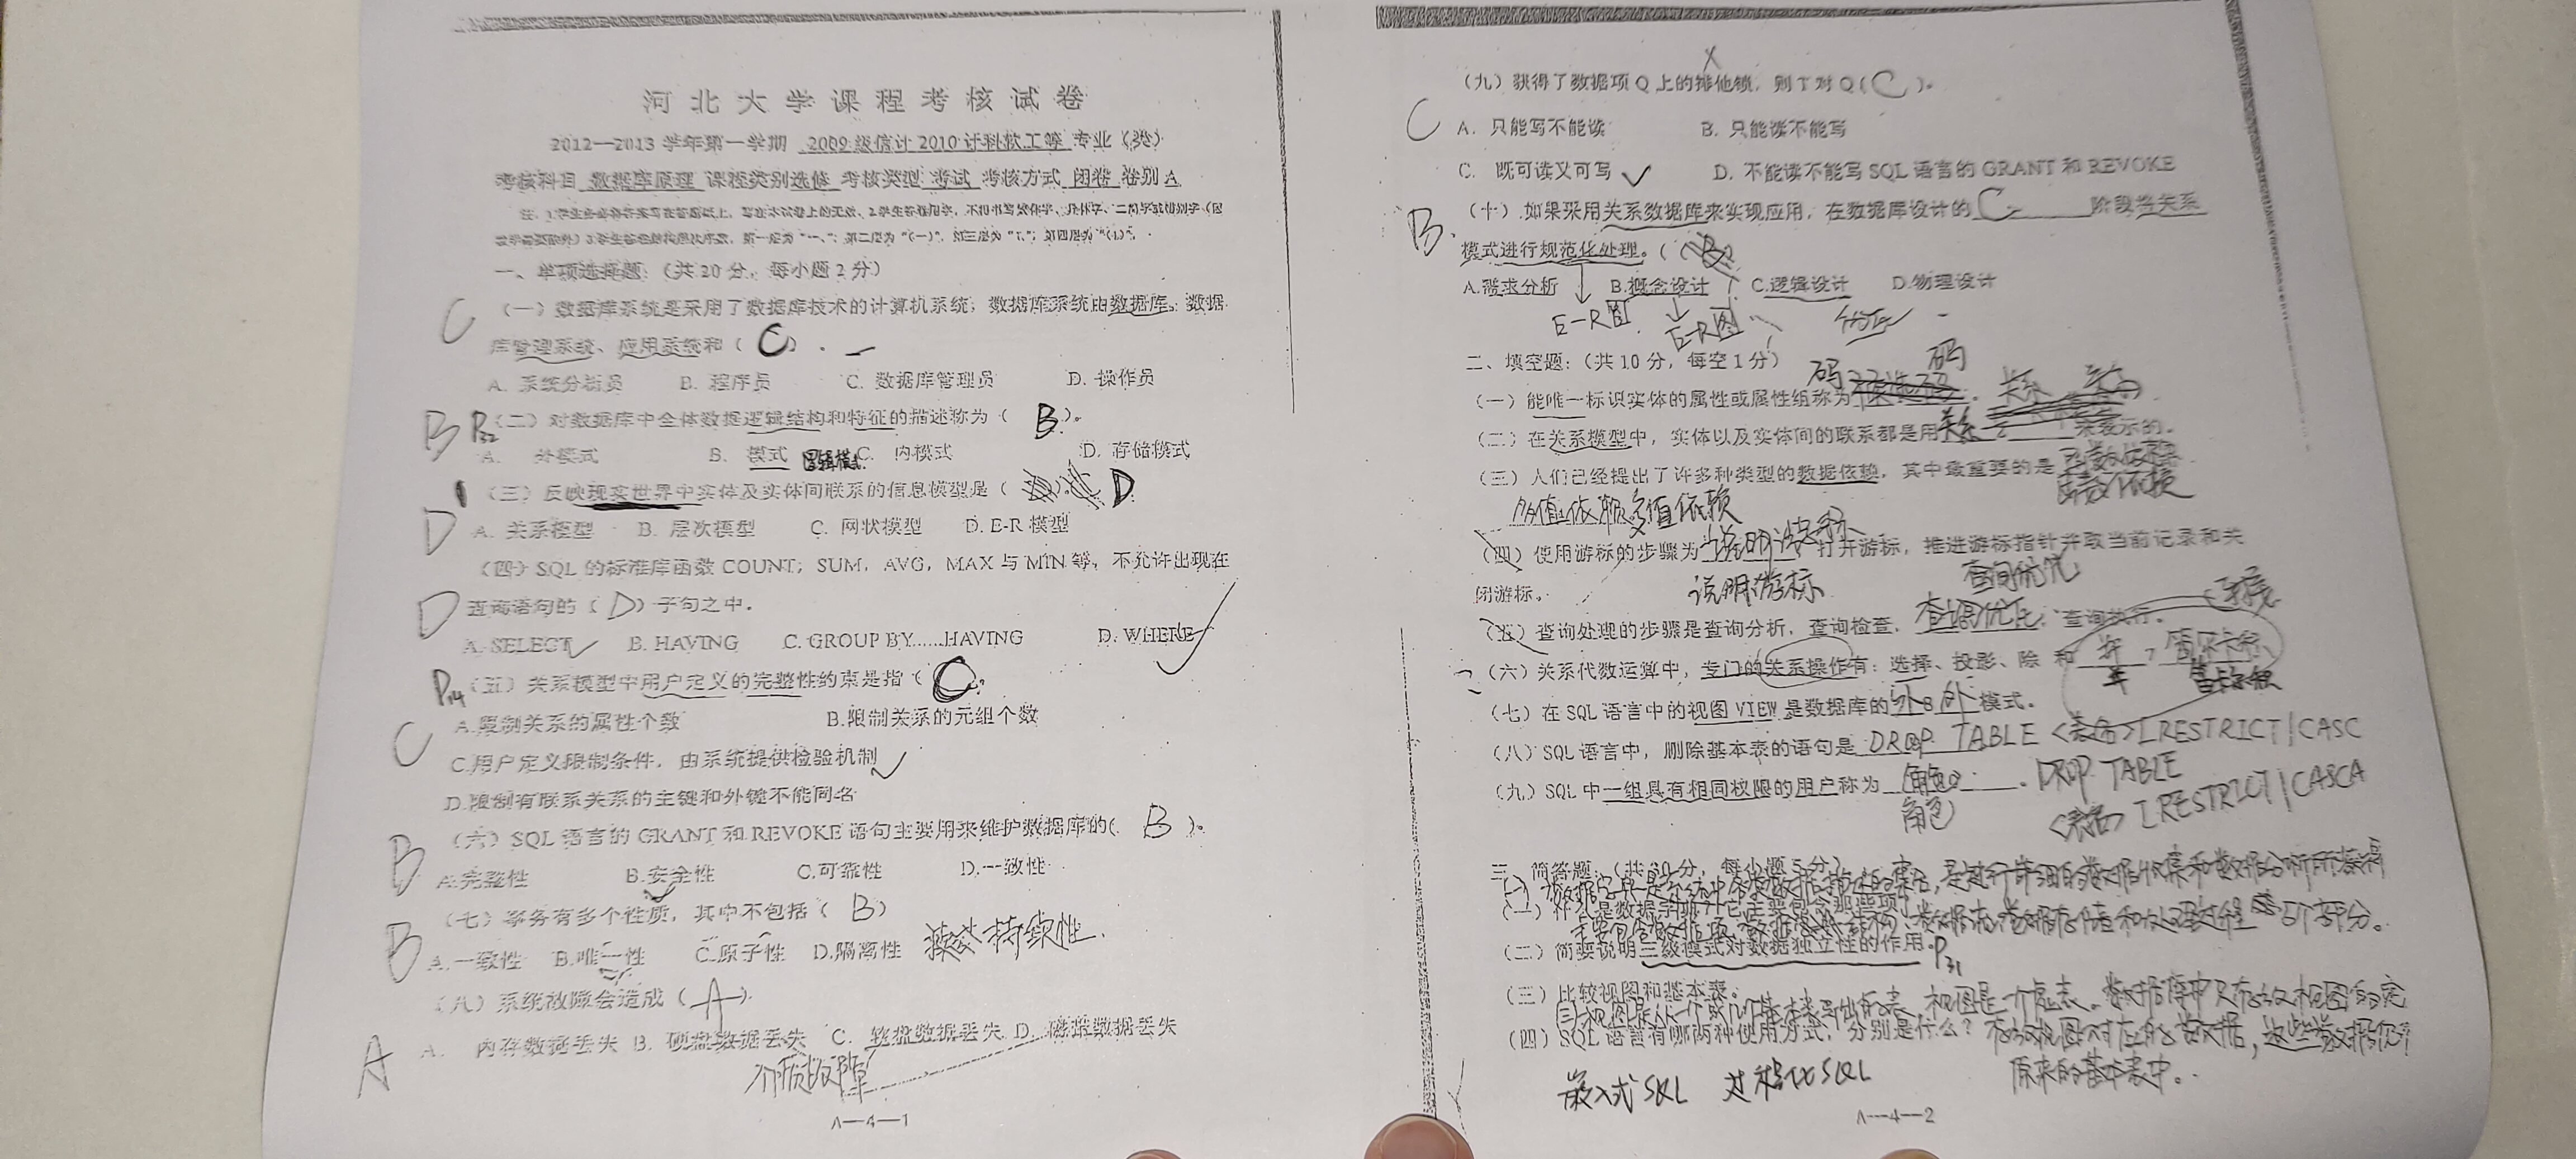 河北大学课程考核试卷
2012—2013 学年第一学期 2009级信计 2010 计科软工等 专业（类）
考核科目 数据库原理 课程类别选修 考核类型 考试 考核方式 闭卷 卷别 A
一、单项选择题:（共 20 分，每小题 2 分）
C （一）数据库系统是采用了数据库技术的计算机系统，数据库系统由数据库、数据
库管理系统、应用系统和（ C ）.
A. 系统分析员 B. 程序员 C. 数据库管理员 D. 操作员
B P32 （二）对数据库中全体数据逻辑结构和特征的描述称为（ B ）。
A. 外模式 B. 模式 逻辑模式 C. 内模式 D. 存储模式
（三）反映现实世界中实体及实体间联系的信息模型是（ D
D A. 关系模型 B. 层次模型 C. 网状模型 D. E-R 模型
（四）SQL 的标准库函数 COUNT，SUM，AVG，MAX 与 MIN 等，不允许出现在
D 查询语句的（ D ）子句之中。
A. SELECT B. HAVING C. GROUP BY……HAVING D. WHERE
P14 （五）关系模型中用户定义的完整性约束是指（ C
A.限制关系的属性个数 B.限制关系的元组个数
C C.用户定义限制条件，由系统提供检验机制
D.限制有联系关系的主键和外键不能同名
B （六）SQL 语言的 GRANT 和 REVOKE 语句主要用来维护数据库的( B )。
A.完整性 B.安全性 C.可靠性 D.一致性
（七）事务有多个性质，其中不包括（ B ）
B A.一致性 B.唯一性 C.原子性 D.隔离性 持续性.
（八）系统故障会造成（ A ）
A A. 内存数据丢失 B. 硬盘数据丢失 C. 软盘数据丢失 D. 磁盘数据丢失
介质故障
A—4—1
X
（九）获得了数据项 Q 上的排他锁，则 T 对 Q（ C ）。
C A. 只能写不能读 B. 只能读不能写
C. 既可读又可写 D. 不能读不能写 SQL 语言的 GRANT 和 REVOKE
（十）如果采用关系数据库来实现应用，在数据库设计的 C 阶段将关系
B. 模式进行规范化处理。（
A.需求分析 B.概念设计 C.逻辑设计 D.物理设计
E-R图 E-R图
二、填空题:（共 10 分，每空 1 分） 码
（一）能唯一标识实体的属性或属性组称为 码
（二）在关系模型中，实体以及实体间的联系都是用 关系 来表示的。
（三）人们已经提出了许多种类型的数据依赖，其中最重要的是 函数依赖
多值依赖 多值依赖 函数依赖
（四）使用游标的步骤为 说明游标 打开游标，推进游标指针并取当前记录和关
闭游标。 说明游标 查询优化
（五）查询处理的步骤是查询分析，查询检查，查询优化，查询执行。 连接
（六）关系代数运算中，专门的关系操作有：选择、投影、除 和 并 7 笛卡尔积
并 笛卡尔积
（七）在 SQL 语言中的视图 VIEW 是数据库的 外 8 外 模式。
（八）SQL 语言中，删除基本表的语句是 DROP TABLE <表名> [RESTRICT|CASC
（九）SQL 中一组具有相同权限的用户称为 角色 。 DROP TABLE
角色 <表名> [RESTRICT|CASCA
三、简答题:（共 20 分，每小题 5 分）
（一）什么是数据字典？它主要包含那些项？
（二）简要说明三级模式对数据独立性的作用。 P31
（三）比较视图和基本表。
（四）SQL 语言有哪两种使用方式，分别是什么？ 不存放视图对应的数据，这些数据仍
嵌入式 SQL 过程化 SQL 原来的基本表中。
A—4—2